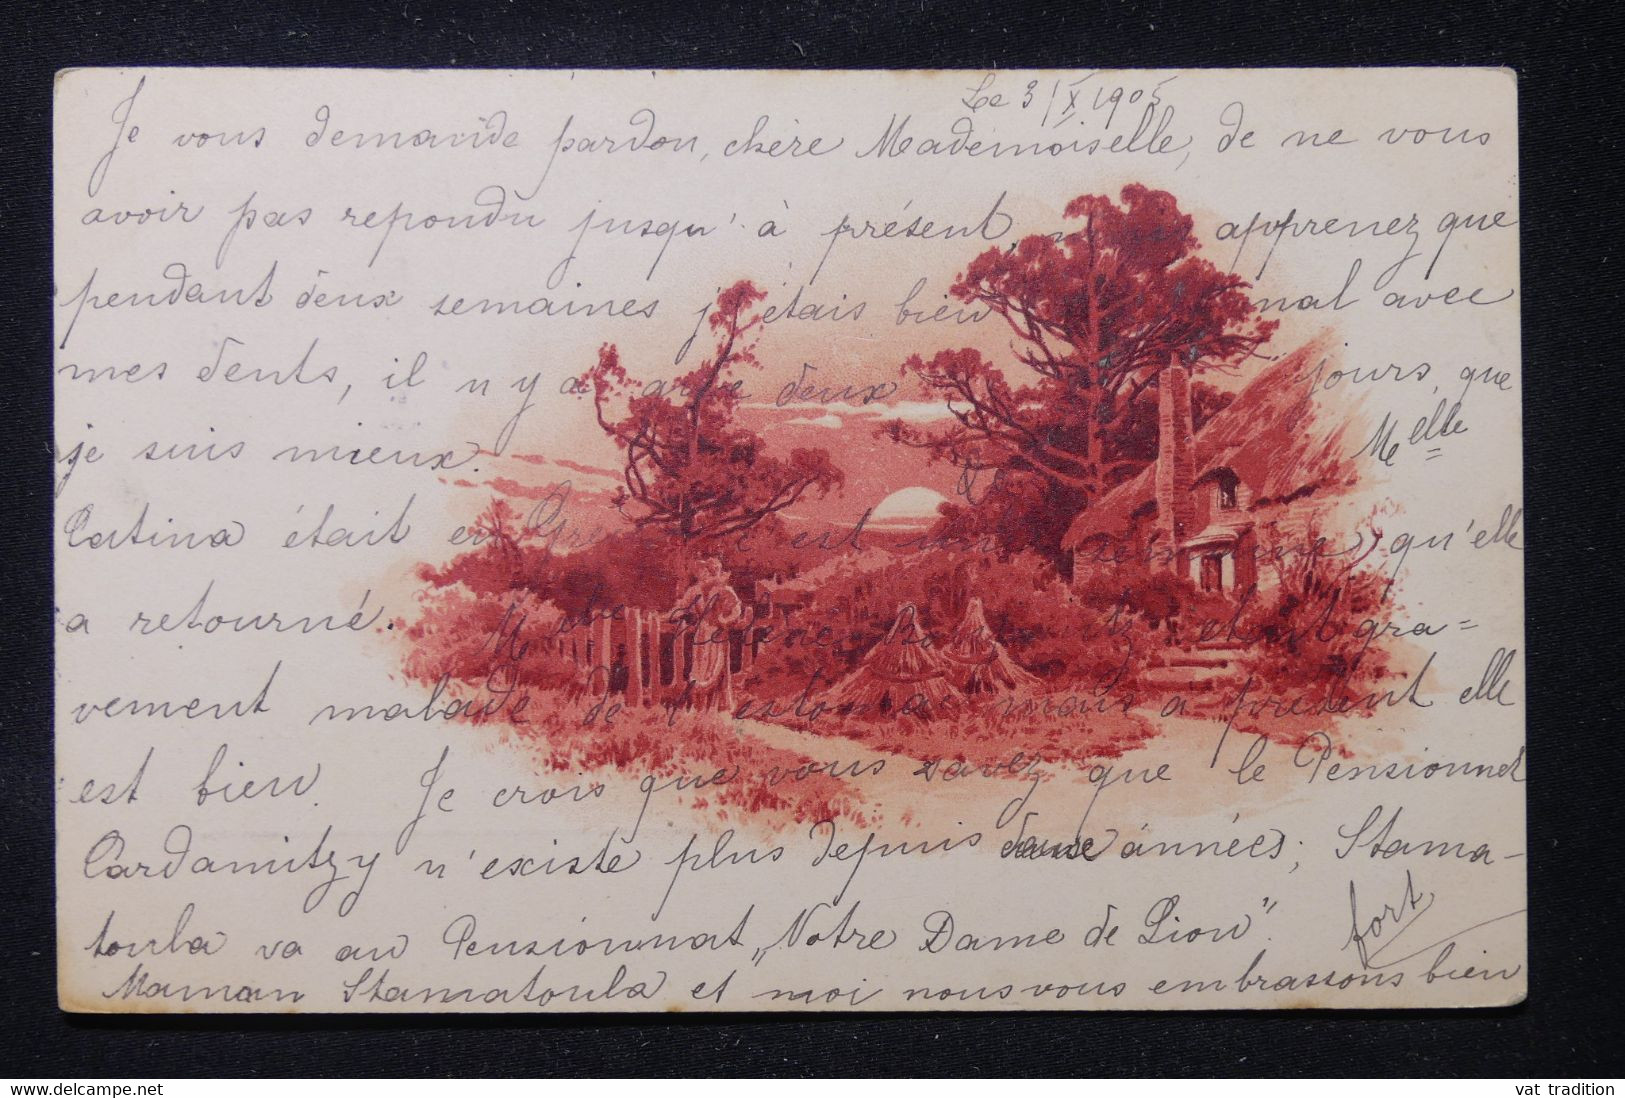 Le 3/X 1905
Je vous demande pardon, chère Mademoiselle, de ne vous
avoir pas repondu jusqu'à présent, mais apprenez que
pendant deux semaines j'étais bien mal avec
mes dents, il n'y a que deux jours, que
je suis mieux. Melle
Catina était en Grèce c'est une semaine qu'elle
a retourné. Hélène était gra=
vement malade de l'estomac mais à présent elle
est bien. Je crois que vous savez que le Pensionnet
Cardamitzy n'existe plus depuis années; Stama-
toula va au Pensionnat „Notre Dame de Sion".
Maman Stamatoula et moi nous vous embrassons bien
fort
www.delcampe.net
vat tradition